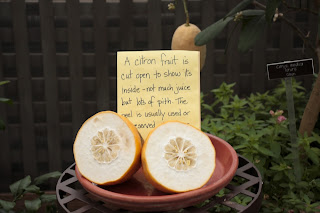 A citron fruit is
cut open to show its
inside - not much juice
but lots of pith. The
peel is usually used or